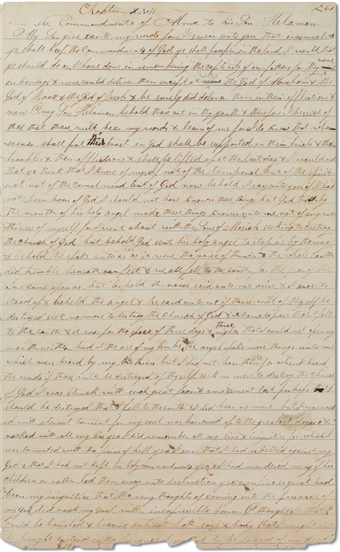 Chapter XVII 261
The Commandments of Alma to his Son Helaman
My Son give ear to my words for I swear unto you that inasmuch as
ye shall keep the Commandments of God ye shall prosper in the land I would that
ye should do as I have done in remembering the captivity of our fathers for they were
in bondage & none could deliver them except it was the God of Abraham & the
God of Isaac & the God of Jacob & he surely did deliver them in their afflictions &
now O my Son Helaman behold thou art in thy youth & therefore I beseech of
thee that thou wilt hear my words & learn of me for I do know that whom
soever shall put their trust in God shall be supported in their trials & their
troubles & their afflictions & shall be lifted up at the last day & I would not
that ye think that I know of myself not of the temporal but of the spirit
ual not of the carnal mind but of God now behold I say unto you if I had
not been born of God I should not have known these things but God hath by
the mouth of his holy angel made these things known unto me not of any wor
thiness of myself for I went about with the Sons of Mosiah seeking to destroy
the church of God but behold God sent his holy angel to stop us by the way
& behold he spake unto us as it were the voice of thunder & the whole earth
did tremble beneath our feet & we all fell to the earth for the fear of the
Lord came upon us but behold the voice said unto me arise & I arose &
stood up & beheld the angel & he said unto me if thou wilt of thyself be
destroyed seek no more to destroy the church of God & it came to pass that I fell
to the earth & it was for the space of three days & three nights that I could not open my
mouth neither had I the use of my limbs & the angel spake more things unto me
which were heard by my brethren but I did not hear them for when I heard
the words if thou wilt be destroyed of thyself seek no more to destroy the church
of God I was struck with such great fear & amazement lest perhaps that I
should be destroyed that I fell to the earth & I did hear no more but I was rack
ed with eternal torment for my soul was harrowed up to the greatest degree &
racked with all my sins yea I did remember all my sins & iniquities for which I
was tormented with the pains of hell yea I saw that I had rebelled against my
God & that I had not kept his holy commandments yea & I had murdered many of his
children or rather led them away unto destruction yea & in fine so great had
been my iniquities that the very thoughts of coming into the presence of
my God did rack my soul with inexpressible horror O thought I that I
could be banished & become extinct both soul & body that I might not
be brought to stand in the presence of my God to be judged of my